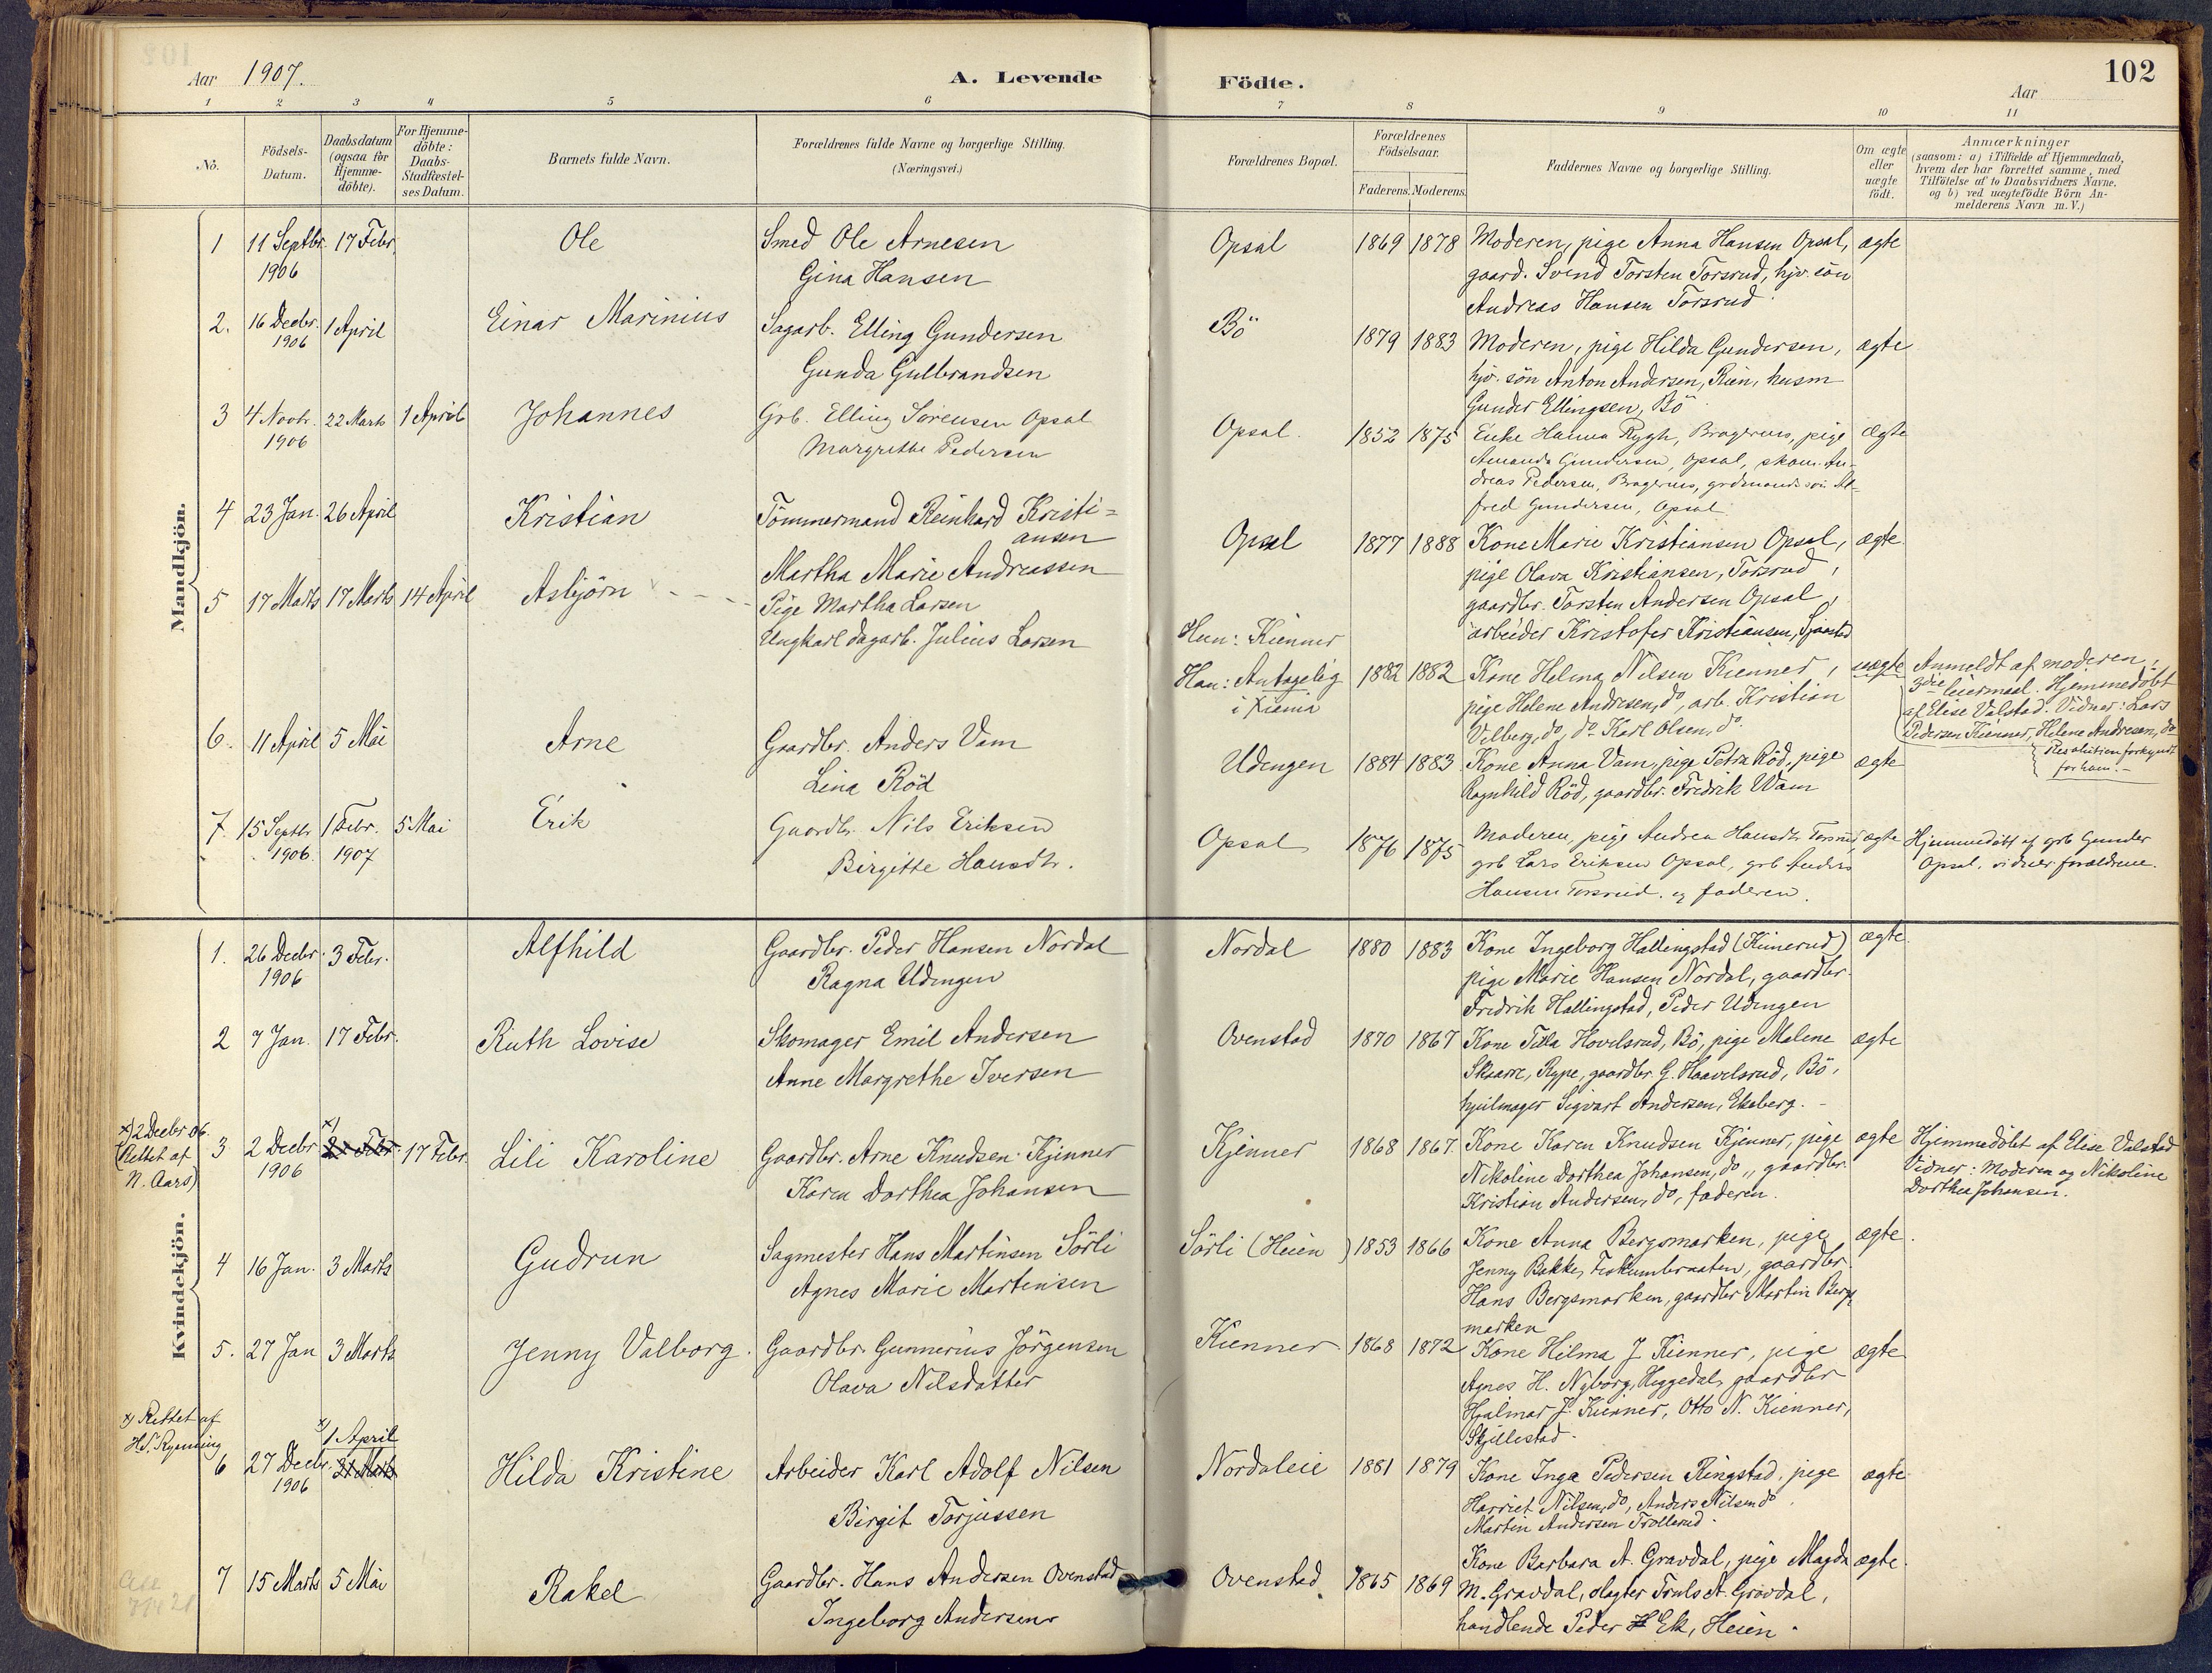 Aar 1907. A. Levende Födte. Aar 102
1 2 3 4 5 6 7 8 9 10 11
No. Födsels-Datum. Daabsdatum (ogsaa for Hjemmedöbte). For Hjemmedöbte: Daabs-Stadfæstelses Datum. Barnets fulde Navn. Forældrenes fulde Navne og borgerlige Stilling. (Næringsvei.) Forældrenes Bopæl. Forældrenes Födselsaar. Faderens. Moderens. Faddernes Navne og borgerlige Stilling. Om ægte eller uægte födt. Anmærkninger (saasom: a) i Tilfælde af Hjemmedaab, hvem der har forrettet samme, med Tilföielse af to Daabsvidners Navne, og b) ved uægtefödte Börn Anmelderens Navn m. V.)
Mandkjön.
1 11 Septbr. 1906 17 Febr. Ole
Smed Ole Arnesen
Gina Hansen
Opsal 1869 1878
Moderen, pige Anna Hansen Opsal,
gaard. Svend Torsten Torsrud, hjv. sön
Andreas Hansen Torsrud.
ægte
2. 16 Decbr. 1906 1 April Einar Marinius
Sagarb. Elling Gundersen
Gunda Gulbrandsen
Bö 1879 1883
Moderen, pige Hilda Gundersen,
hjv. sön Anton Andersen, Rien, husm
Gunder Ellingsen, Bö
ægte
3 4 Novbr. 1906 22 Marts 1 April Johannes
Grb. Elling Sörensen Opsal
Margrethe Pedersen
Opsal. 1852 1875
Enke Hanna Rygh, Bragernes, pige
Amanda Gundersen, Opsal, skom. An-
dreas Pedersen, Bragernes, grdmands sön Al-
fred Gundersen, Opsal
ægte
4 23 Jan. 26 April Kristian
Tömmermand Reinhard Kristi=
ansen
Martha Marie Andreassen
Opsal 1877 1888
Kone Marie Kristiansen Opsal,
pige Olava Kristiansen, Torsrud,
gaardbr. Torsten Andersen Opsal,
arbeider Kristofer Kristiansen, Sjaastad
ægte.
5 17 Marts 17 Marts 14 April Asbjörn
Pige Martha Larsen
Ungkarl dagarb. Julius Larsen
Hun: Kienner
Han: Antagelig
i Kr.ania
1882 1882
Kone Helma Nilsen Kienner,
pige Helene Andresen, do, arb. Kristian
Velberg, do, do Karl Olsen, do.
uægte
Anmeldt af moderen;
3die leiermaal. Hjemmedöbt
af Elise Valstad. Vidner: Lars
Pedersen Kienner, Helene Andresen, do
Resolution forkyndt
for ham. -
6. 11 April 5 Mai Arne
Gaardbr. Anders Vam
Lina Röd
Udengen 1884 1883
Kone Anna Vam, pige Petra Röd, pige
Ragnhild Röd, gaardbr. Fredrik Wam
ægte
7. 15 Septbr 1906. 1 Febr. 1907 5 Mai Erik
Gaardb. Nils Eriksen
Birgitte Hansdtr.
Opsal 1876 1875
Moderen, pige Andrea Hansdtr Torsrud
grb Lars Eriksen Opsal, grb Anders
Hansen Torsrud. og faderen.
ægte
Hjemmedöbt af grb Gunder
Opsal. vidner forældrene.
Kvindekjön.
1. 26 Decbr. 1906 3 Febr. Alfhild
Gaardbr. Peder Hansen Nordal
Ragna Udengen
Nordal 1880 1883
Kone Ingeborg Hallingstad (Kimerud)
pige Marie Hansen Nordal, gaardbr.
Fredrik Hallingstad, Peder Udengen
ægte.
2 7 Jan. 17 Febr. Ruth Lovise
Skomager Emil Andersen
Anne Margrethe Iversen
Ovenstad 1870 1867
Kone Tilla Hovelsrud, Bö, pige Malene
Skaarre, Rype, gaardbr. G. Haavelsrud, Bö,
hjulmager Sigvart Andersen, Ekeberg. -
ægte
x) 2 Decbr 06.
(Rettet af
N. Aars)
3 2 Decbr 1906 x) 17 Febr. Lili Karoline
Gaardbr. Arne Knudsen Kjenner
Karen Dorthea Johansen
Kjenner 1868 1867.
Kone Karen Knudsen Kjenner, pige
Nikoline Dorthea Johansen, do, gaardbr.
Kristian Andersen, do, faderen.
ægte
Hjemmedöbt af Elise Valstad
Vidner: Moderen og Nikoline
Dorthea Johansen.
4 16 Jan. 3 Marts Gudrun
Sagmester Hans Martinsen Sörli
Agnes Marie Martinsen
Sörli (Heien) 1853 1866
Kone Anna Bergsmarken, pige
Jenny Bakke, Fiskumbraaten, gaardbr.
Hans Bergsmarken, gaardbr Martin Bergs
marken
ægte.
5. 27 Jan 3 Marts Jenny Valborg.
Gaardbr. Gunnerius Jörgensen
Olava Nilsdatter
Kienner. 1868 1872
Kone Hilma J. Kienner, pige
Agnes H. Nyborg, Heggedal, gaardbr
Hjalmar J. Kienner, Otto N. Kienner,
Skjillestad.
ægte
x) Rettet af
H. S. Rynning
6 27 Decbr. 1906 x) 1 April 21 Marts Hilda Kristine
Arbeider Karl Adolf Nilsen
Birgit Torjussen
Nordaleie 1881 1879
Kone Inga Pedersen Ringstad, pige
Harriet Nilsen, do, Anders Nilsen do.
Martin Andersen Trollerud.
ægte.
7 15 Marts 5 Mai Rakel
Gaardbr. Hans Andersen Ovenstad
Ingeborg Andersen
Ovenstad 1865 1869
Kone Barbara A. Gravdal, pige Magda
M. Gravdal, slagter Truls A. Gravdal,
handlende Peder Ek, Heien.
ægte.